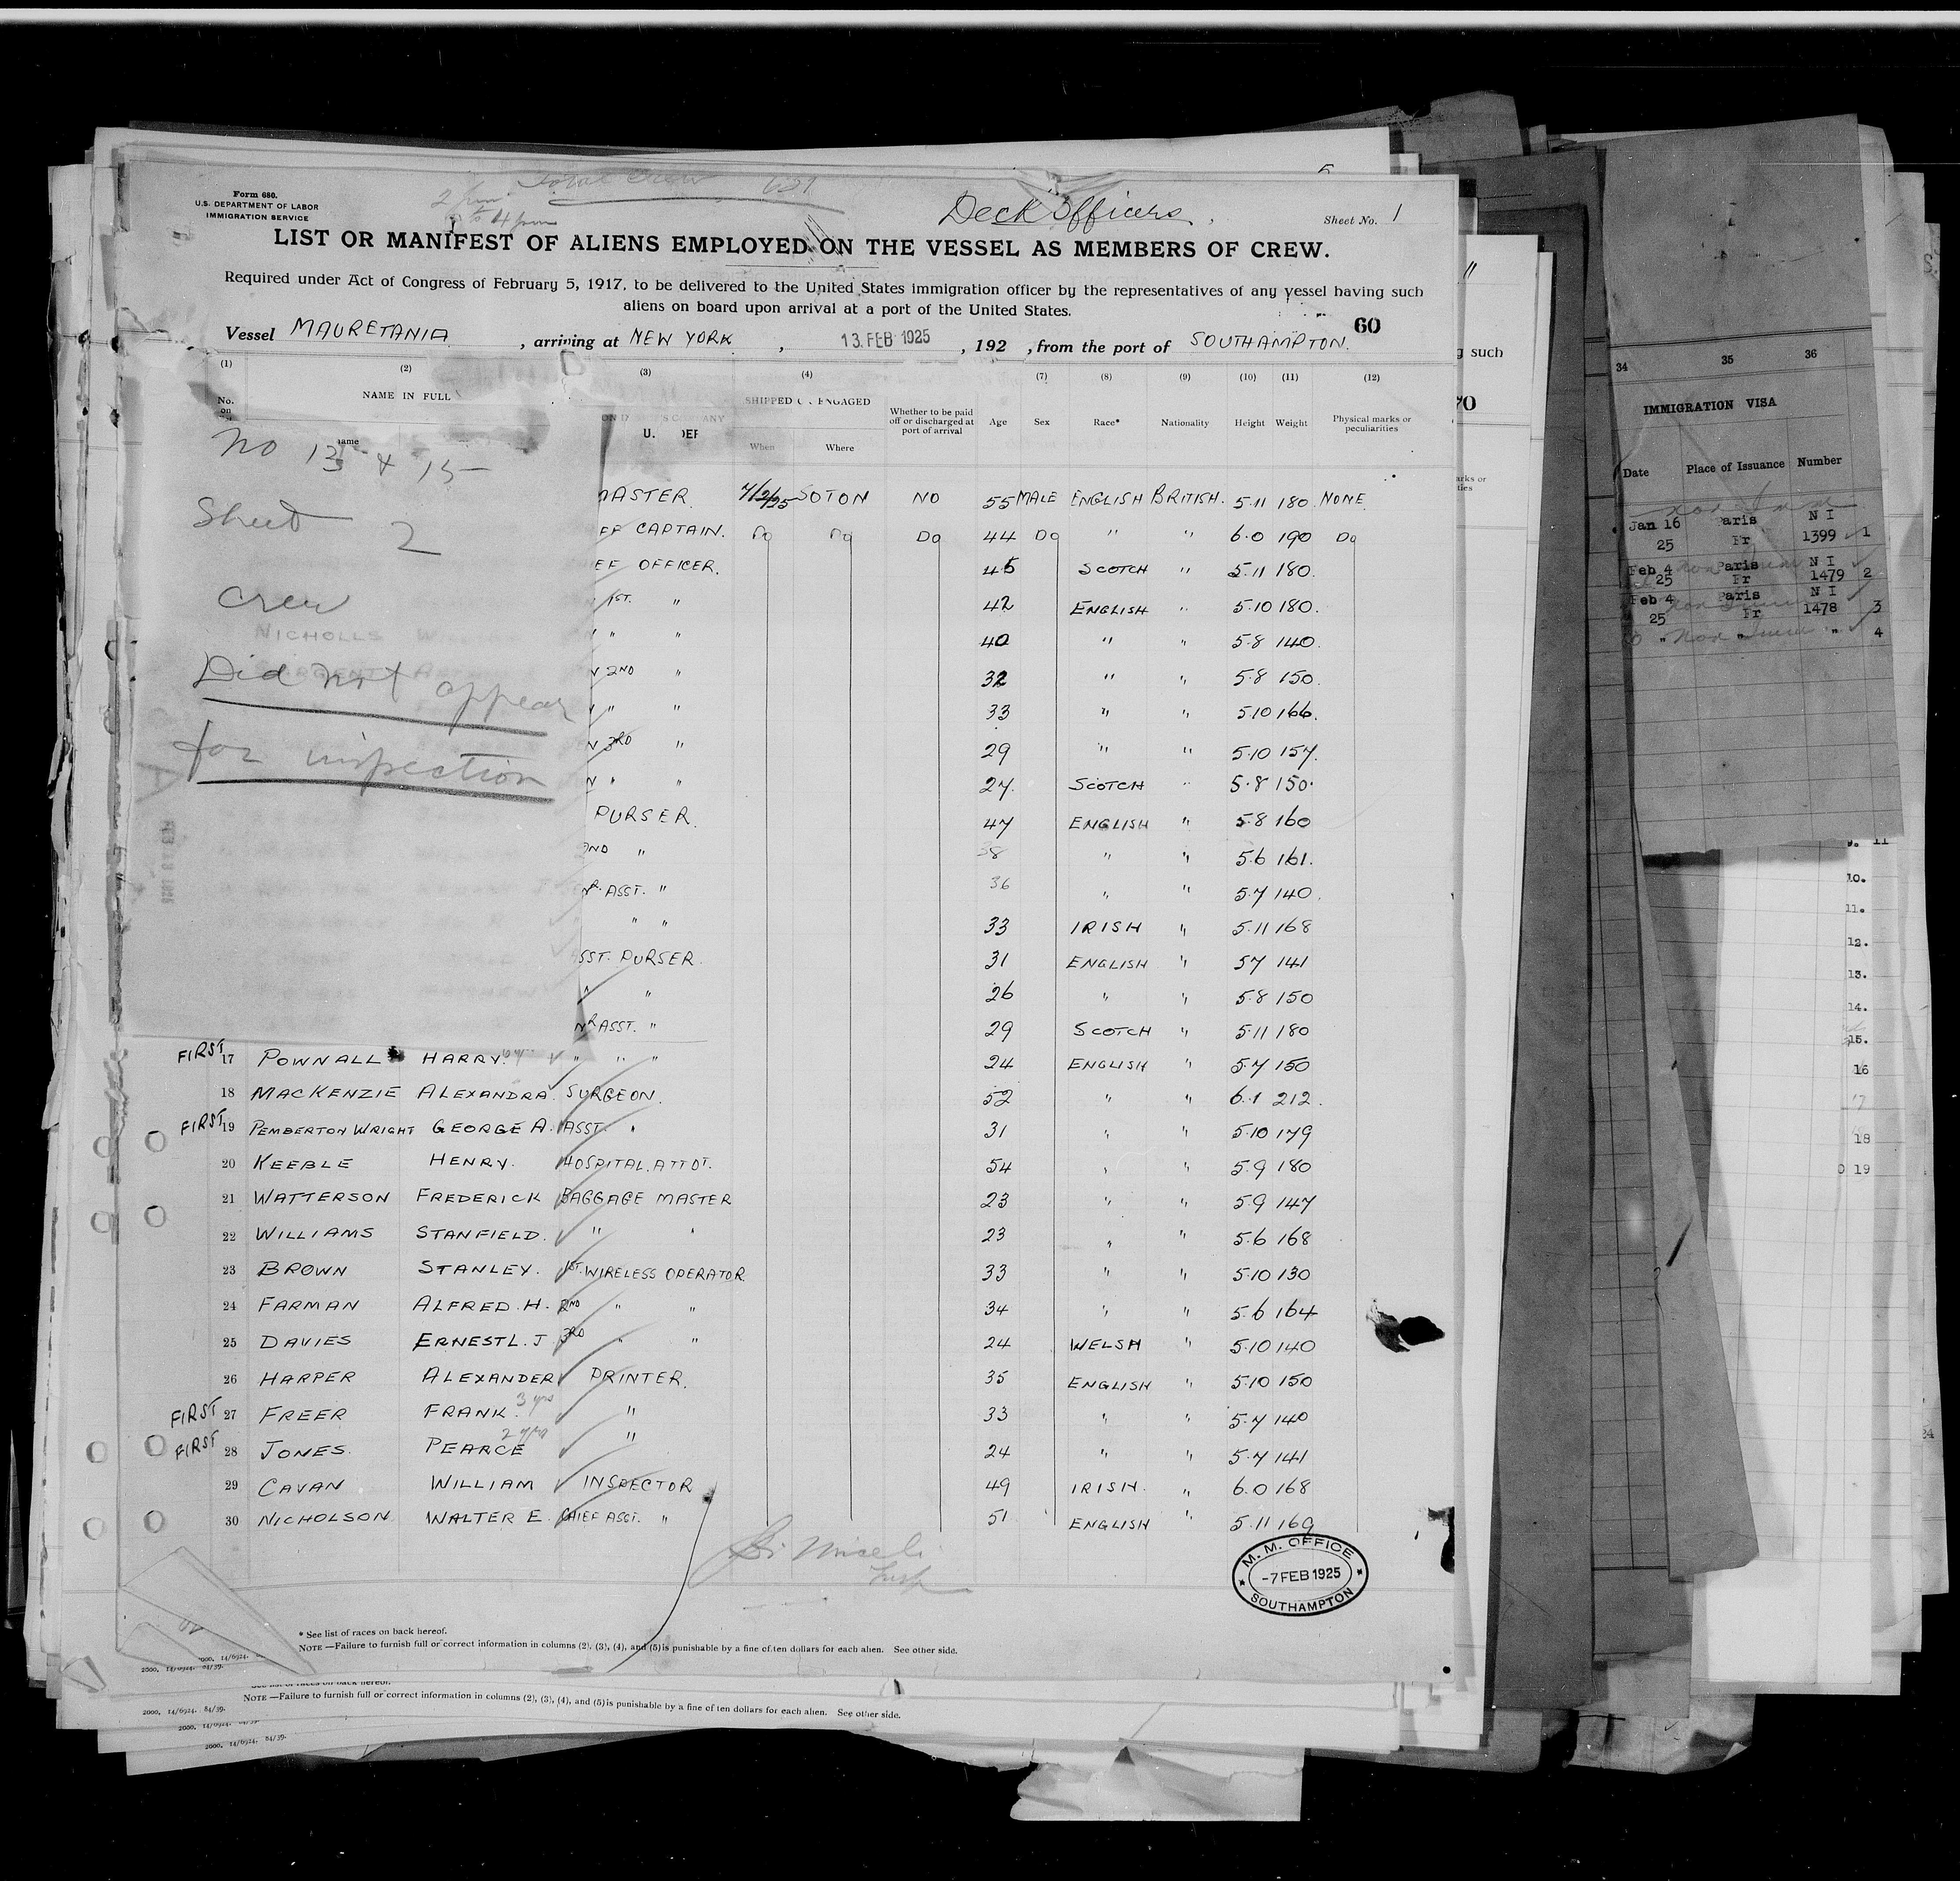 Total Crew
2 pm
to 4 pm
Form 680.
U.S. DEPARTMENT OF LABOR
IMMIGRATION SERVICE
Deck Officers.
Sheet No. 1
LIST OR MANIFEST OF ALIENS EMPLOYED ON THE VESSEL AS MEMBERS OF CREW.
Required under Act of Congress of February 5, 1917, to be delivered to the United States immigration officer by the representatives of any vessel having such
aliens on board upon arrival at a port of the United States.
60
Vessel MAURETANIA, arriving at NEW YORK, 13 FEB 1925, 192 , from the port of SOUTHAMPTON.
(1) (2) (3) (4) (7) (8) (9) (10) (11) (12)
No. on NAME IN FULL SHIPPED ENGAGED When Where Whether to be paid off or discharged at port of arrival Age Sex Race* Nationality Height Weight Physical marks or peculiarities
No 13 & 15
Sheet 2
Crew
Did not appear
for inspection
MASTER. 7/2/25 SOTON NO 55 MALE ENGLISH BRITISH. 5.11 180 NONE
FF CAPTAIN. Do Do Do 44 Do " " 6.0 190 Do
EF OFFICER. 45 SCOTCH " 5.11 180.
1ST. " 42 ENGLISH " 5.10 180.
" " 40 " " 5.8 140.
2ND " 32 " " 5.8 150.
" " 33 " " 5.10 166.
3RD " 29 " " 5.10 157.
" " 27. SCOTCH " 5.8 150.
PURSER. 47 ENGLISH " 5.8 160
2ND " 38 " " 5.6 161.
NR. ASST. " 36 " " 5.7 140.
" " 33 IRISH " 5.11 168
SST. PURSER. 31 ENGLISH " 5.7 141
" 26 " " 5.8 150
NR ASST. " 29 SCOTCH " 5.11 180
FIRST 17 POWNALL HARRY. " " " 24 ENGLISH " 5.7 150
18 MACKENZIE ALEXANDRA SURGEON. 52 " " 6.1 212.
FIRST 19 PEMBERTON WRIGHT GEORGE A. ASST. " 31 " " 5.10 179
20 KEEBLE HENRY. HOSPITAL. ATTDT. 54 " " 5.9 180
21 WATTERSON FREDERICK BAGGAGE MASTER 23 " " 5.9 147
22 WILLIAMS STANFIELD. " " 23 " " 5.6 168
23 BROWN STANLEY. 1ST. WIRELESS OPERATOR 33 " " 5.10 130
24 FARMAN ALFRED. H. 2ND " " 34 " " 5.6 164
25 DAVIES ERNEST L. J 3RD " " 24 WELSH " 5.10 140
26 HARPER ALEXANDER PRINTER. 35 ENGLISH " 5.10 150
FIRST 27 FREER FRANK. 3 yrs " 33 " " 5.7 140
FIRST 28 JONES PEARCE 2 yrs " 24 " " 5.7 141
29 CAVAN WILLIAM INSPECTOR 49 IRISH. " 6.0 168
30 NICHOLSON WALTER E. CHIEF ASST. " 51 ENGLISH " 5.11 169
M. M. OFFICE
-7 FEB 1925
SOUTHAMPTON
* See list of races on back hereof.
NOTE —Failure to furnish full or correct information in columns (2), (3), (4), and (5) is punishable by a fine of ten dollars for each alien. See other side.
2000. 14/6924. 84/39.
NOTE —Failure to furnish full or correct information in columns (2), (3), (4), and (5) is punishable by a fine of ten dollars for each alien. See other side.
2000. 14/6924. 84/39.
2000. 14/6924. 84/39.
g such
70
34 35 36
IMMIGRATION VISA
Date Place of Issuance Number
Jan 16 Paris N I
25 Fr 1399 1
Feb 4 Paris N I
25 Fr 1479 2
Feb 4 Paris N I
25 Fr 1478 3
" " " 4
9. 11
10.
11.
12.
13.
14.
15.
16
17
18
19